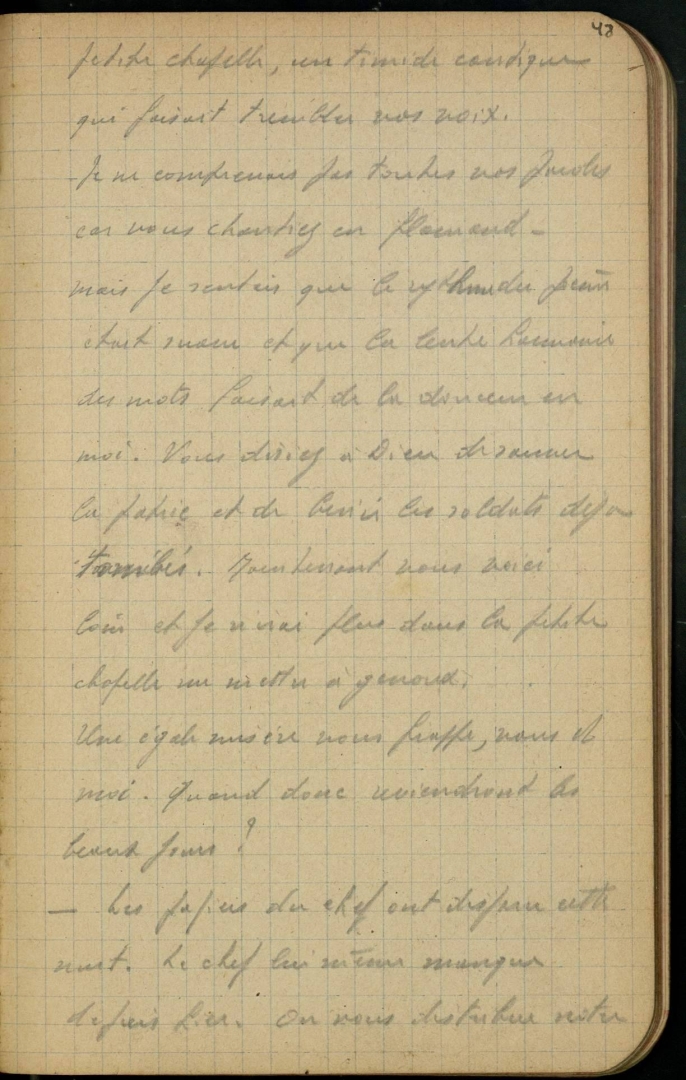 48
petite chapelle, un timide cantique
qui faisait trembler vos voix.
Je ne comprenais pas toutes vos paroles
car vous chantiez en flamand -
mais je sentais que le rythme du
était suave et que la lente harmonie
des mots faisait de la douceur en
moi. Vous disiez à Dieu de sauver
la patrie et de bénir les soldats déjà
tombés. Maintenant vous voici
loin et je n'irai plus dans la petite
chapelle me mettre à genoux.
Une égale misère nous frappe, vous et
moi. Quand donc reviendront les
beaux jours ?
— Les papiers du chef ont disparu cette
nuit. Le chef lui même manque
depuis hier. On nous distribue notre